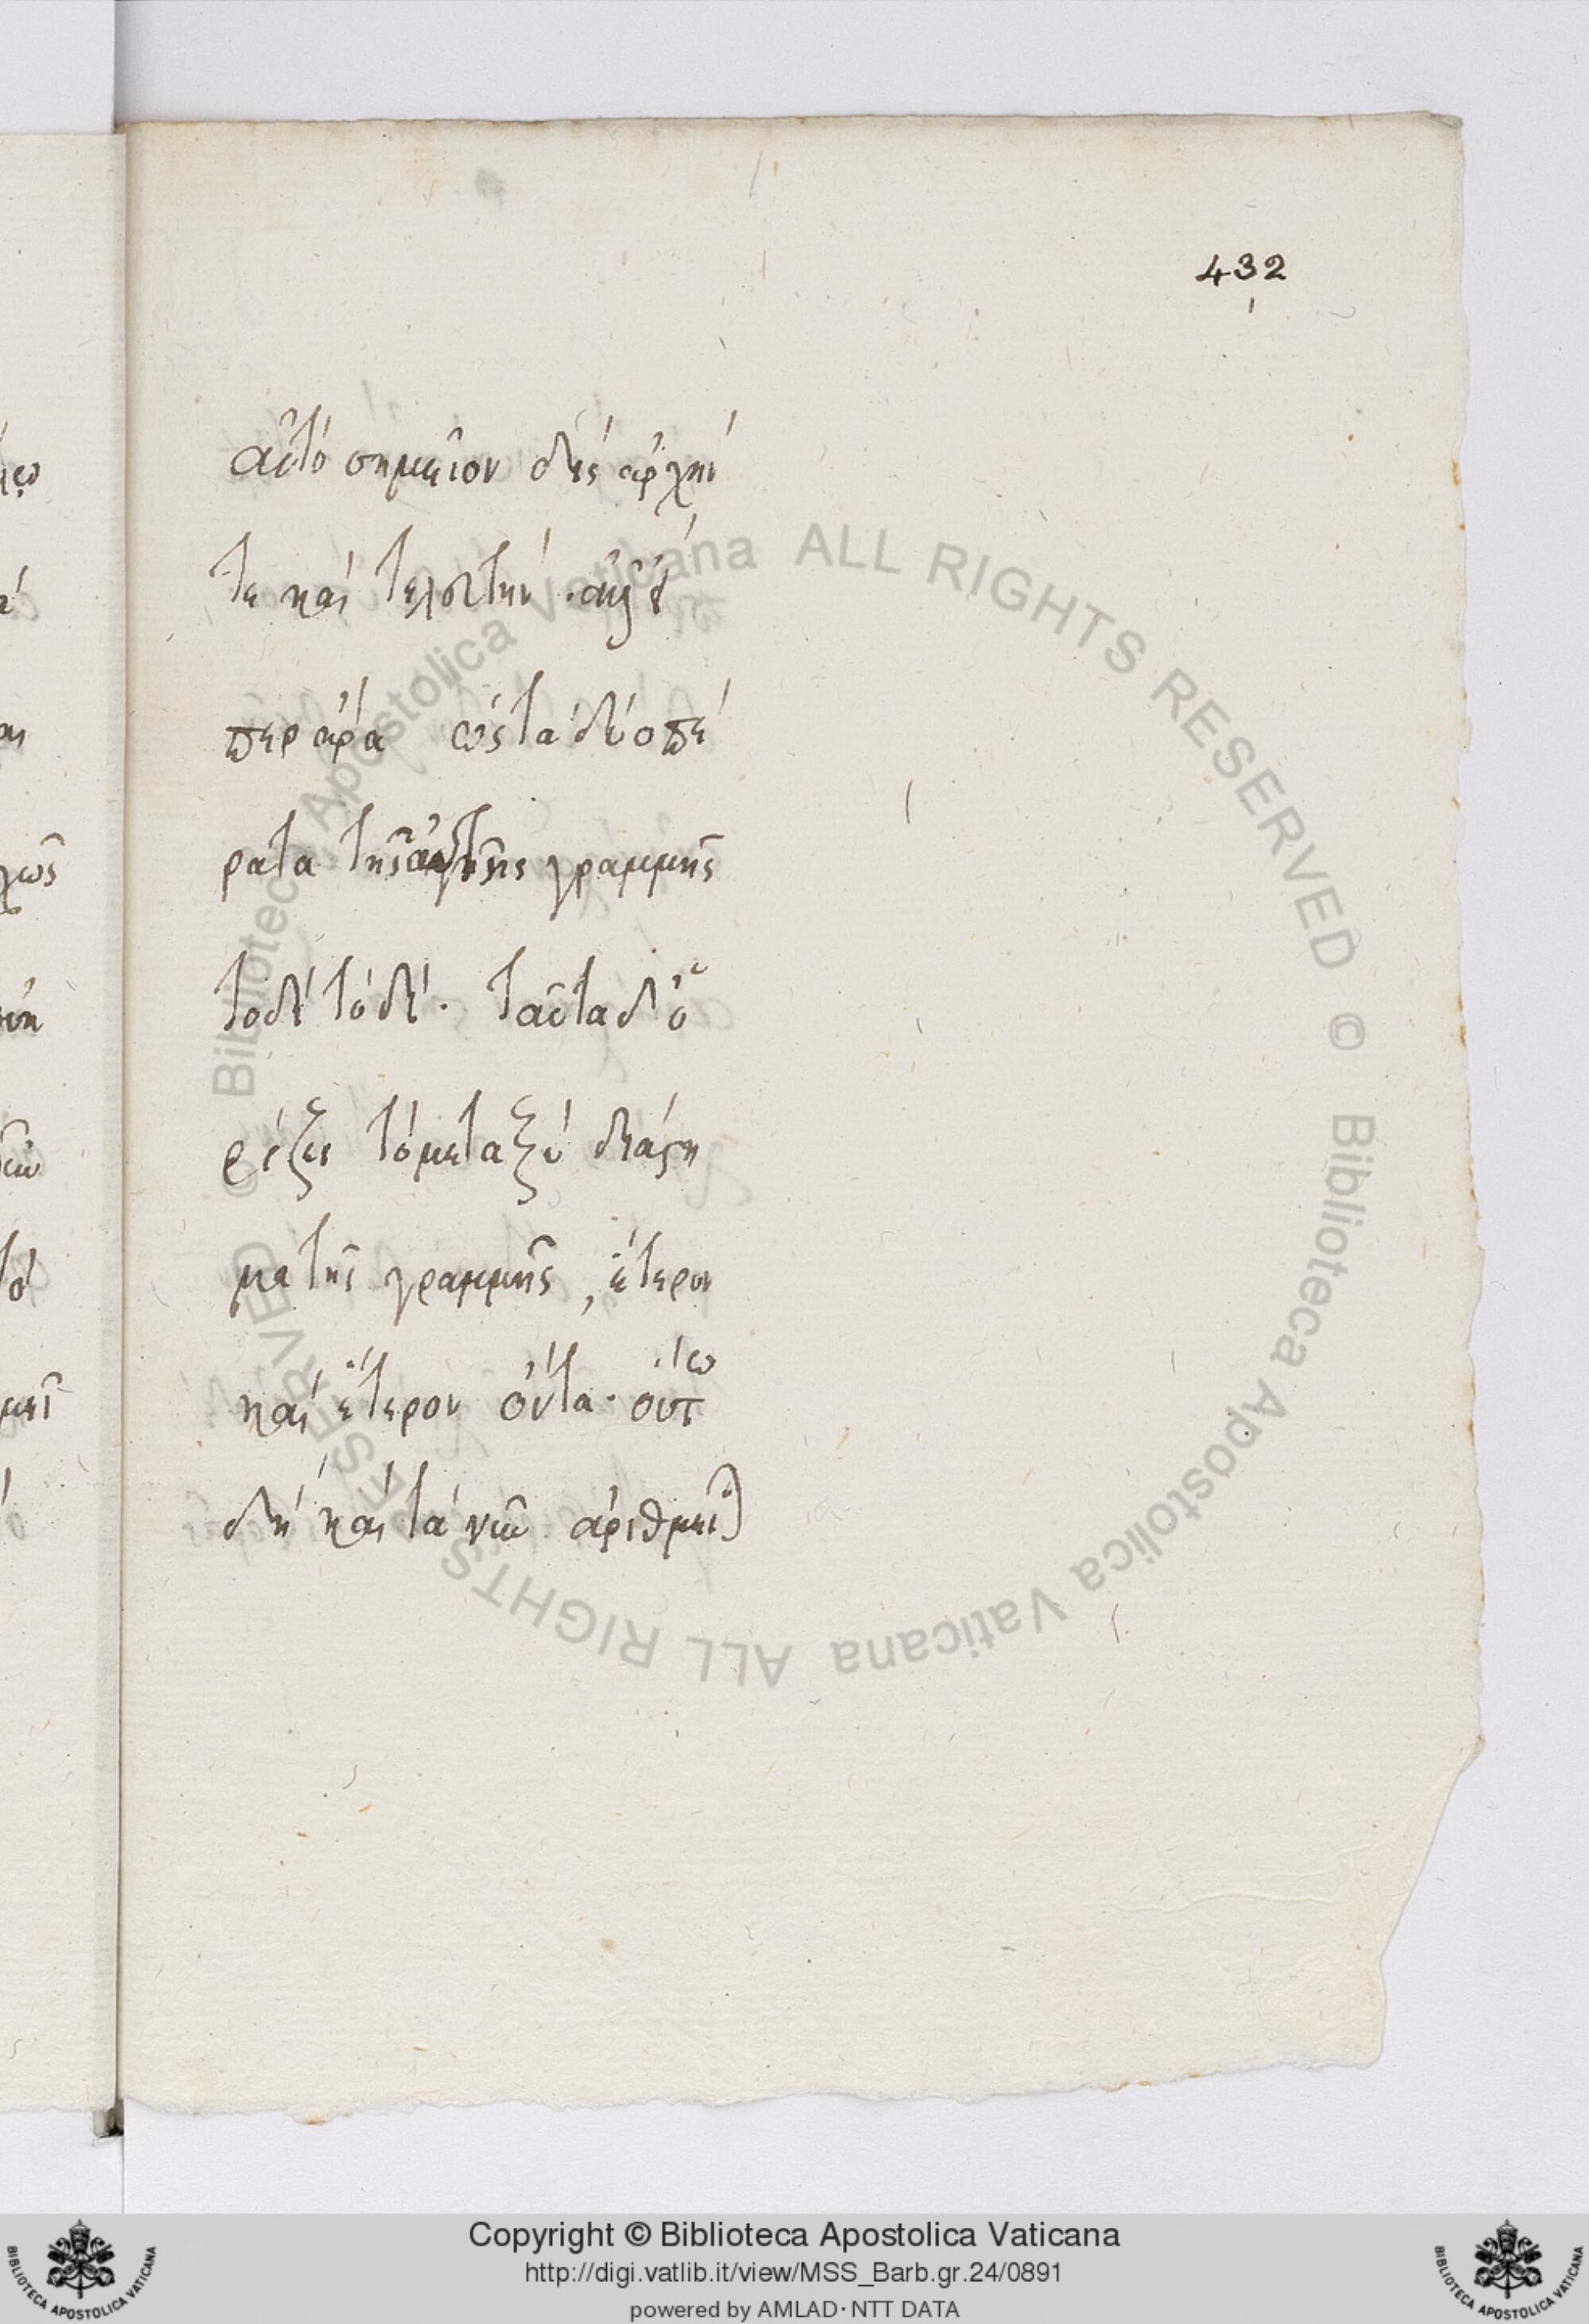 432
αὐτὸ σημεῖον δὶς ἀρχήν
τε καὶ τελευτήν· ἀλλ'
ὥσπερ ἄρα ὡς τὰ δύο πέ
ρατα τῆς αὐτῆς γραμμῆς
τοδὶ τόδε· ταῦτα δ' ὁ
ρίζει τὸ μεταξὺ διάστη
μα τῆς γραμμῆς, ἕτερον
καὶ ἕτερον ὄντα· οὕτω
δὴ καὶ τὰ νῦν ἀριθμεῖ
Biblioteca Apostolica Vaticana ALL RIGHTS RESERVED ©
Biblioteca Apostolica Vaticana ALL RIGHTS RESERVED ©
Copyright © Biblioteca Apostolica Vaticana
http://digi.vatlib.it/view/MSS_Barb.gr.24/0891
powered by AMLAD·NTT DATA
BIBLIOTECA APOSTOLICA VATICANA
BIBLIOTECA APOSTOLICA VATICANA